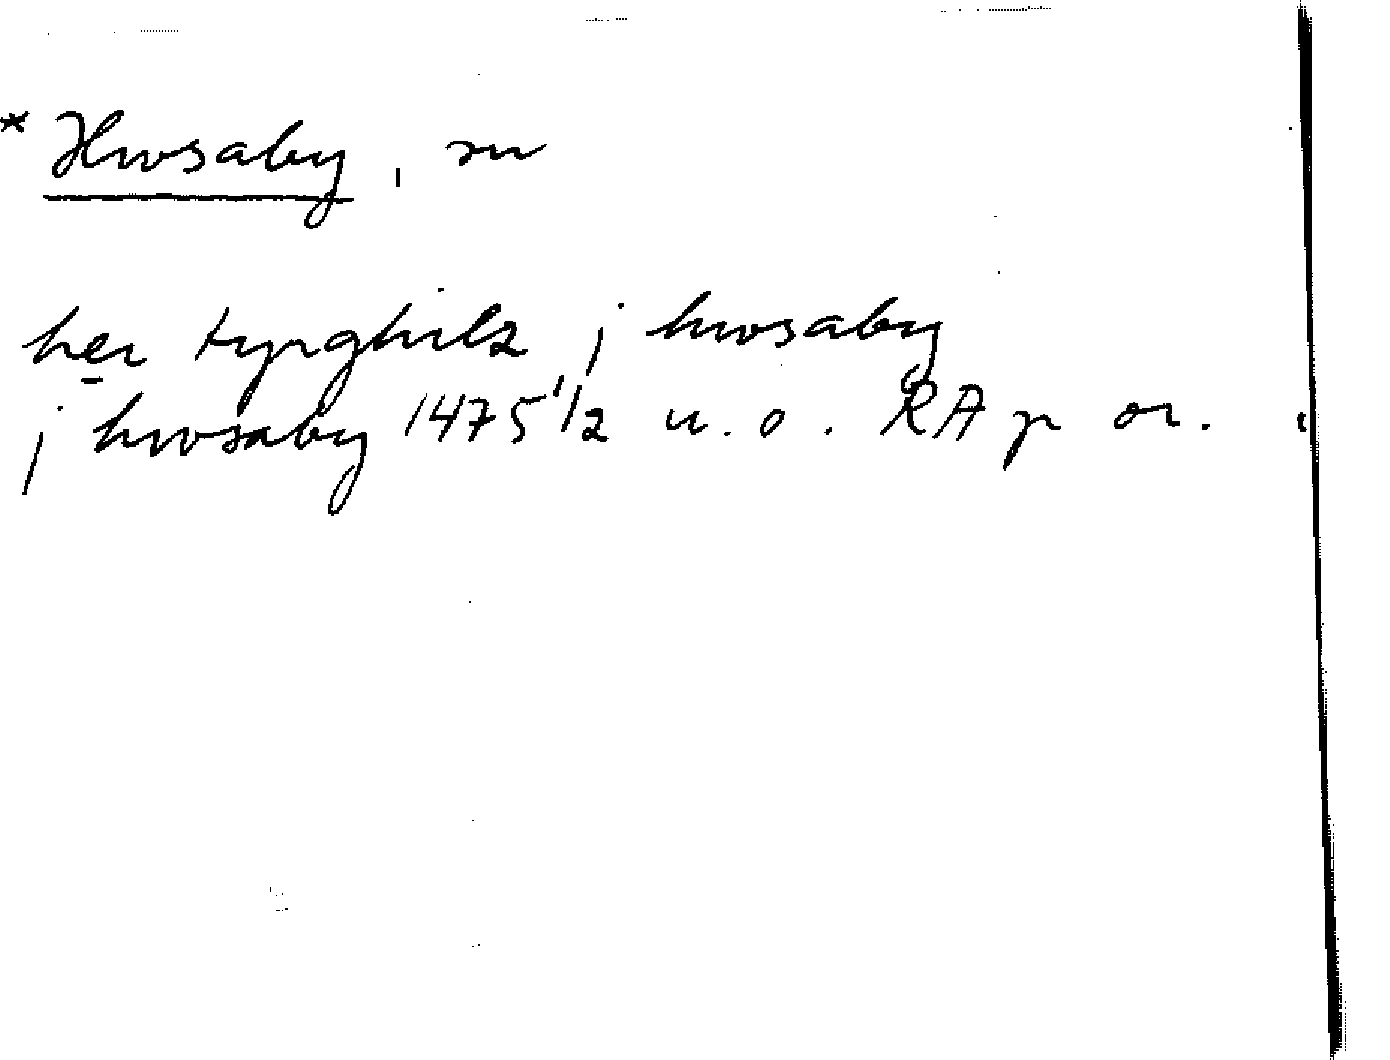 * Hwsaby, sn
her tyrghilz j hwsaby
j hwsaby 1475 1/2 u.o. RAp or.